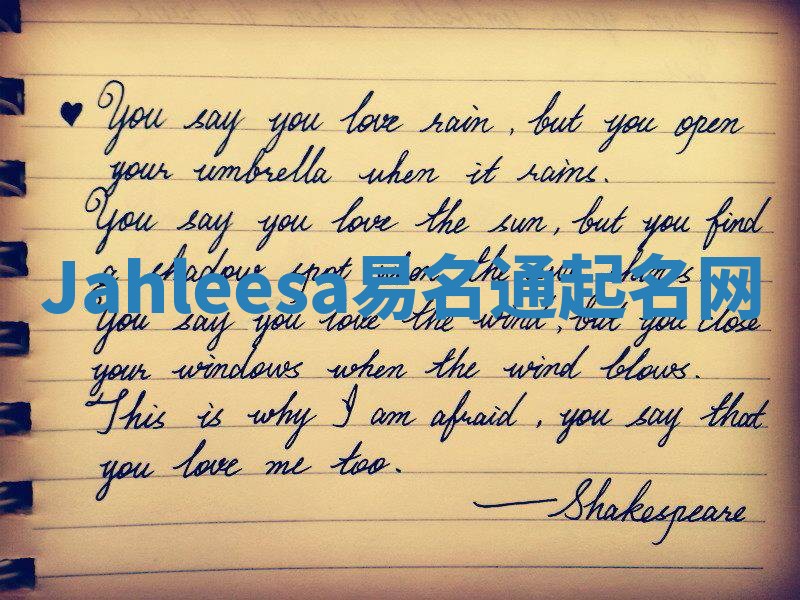 ♥ You say you love rain, but you open
your umbrella when it rains.
You say you love the sun, but you find
a shadow spot when the sun shines.
Jahleesa易名通起名网
You say you love the wind, but you close
your windows when the wind blows.
This is why I am afraid, you say that
you love me too.
—Shakespeare